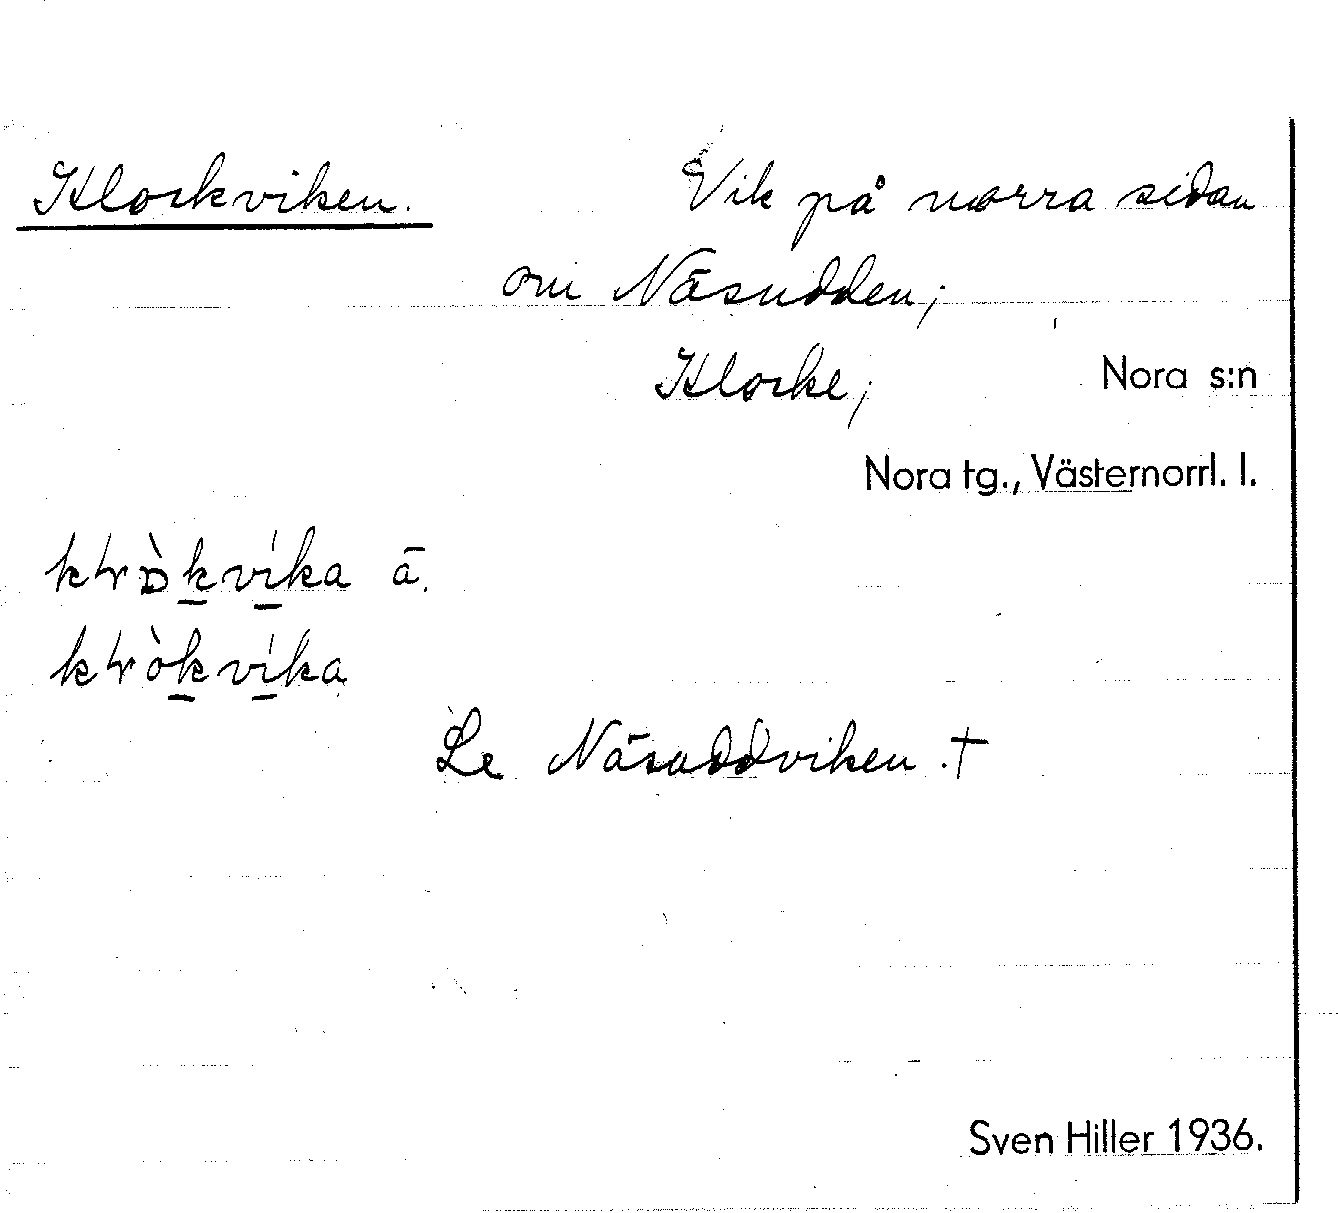 Klockviken. Vik på norra sidan
om Näsudden;
Klocke, Nora s:n
Nora tg., Västernorrl. l.
ä.
Se Näsuddviken. †
Sven Hiller 1936.